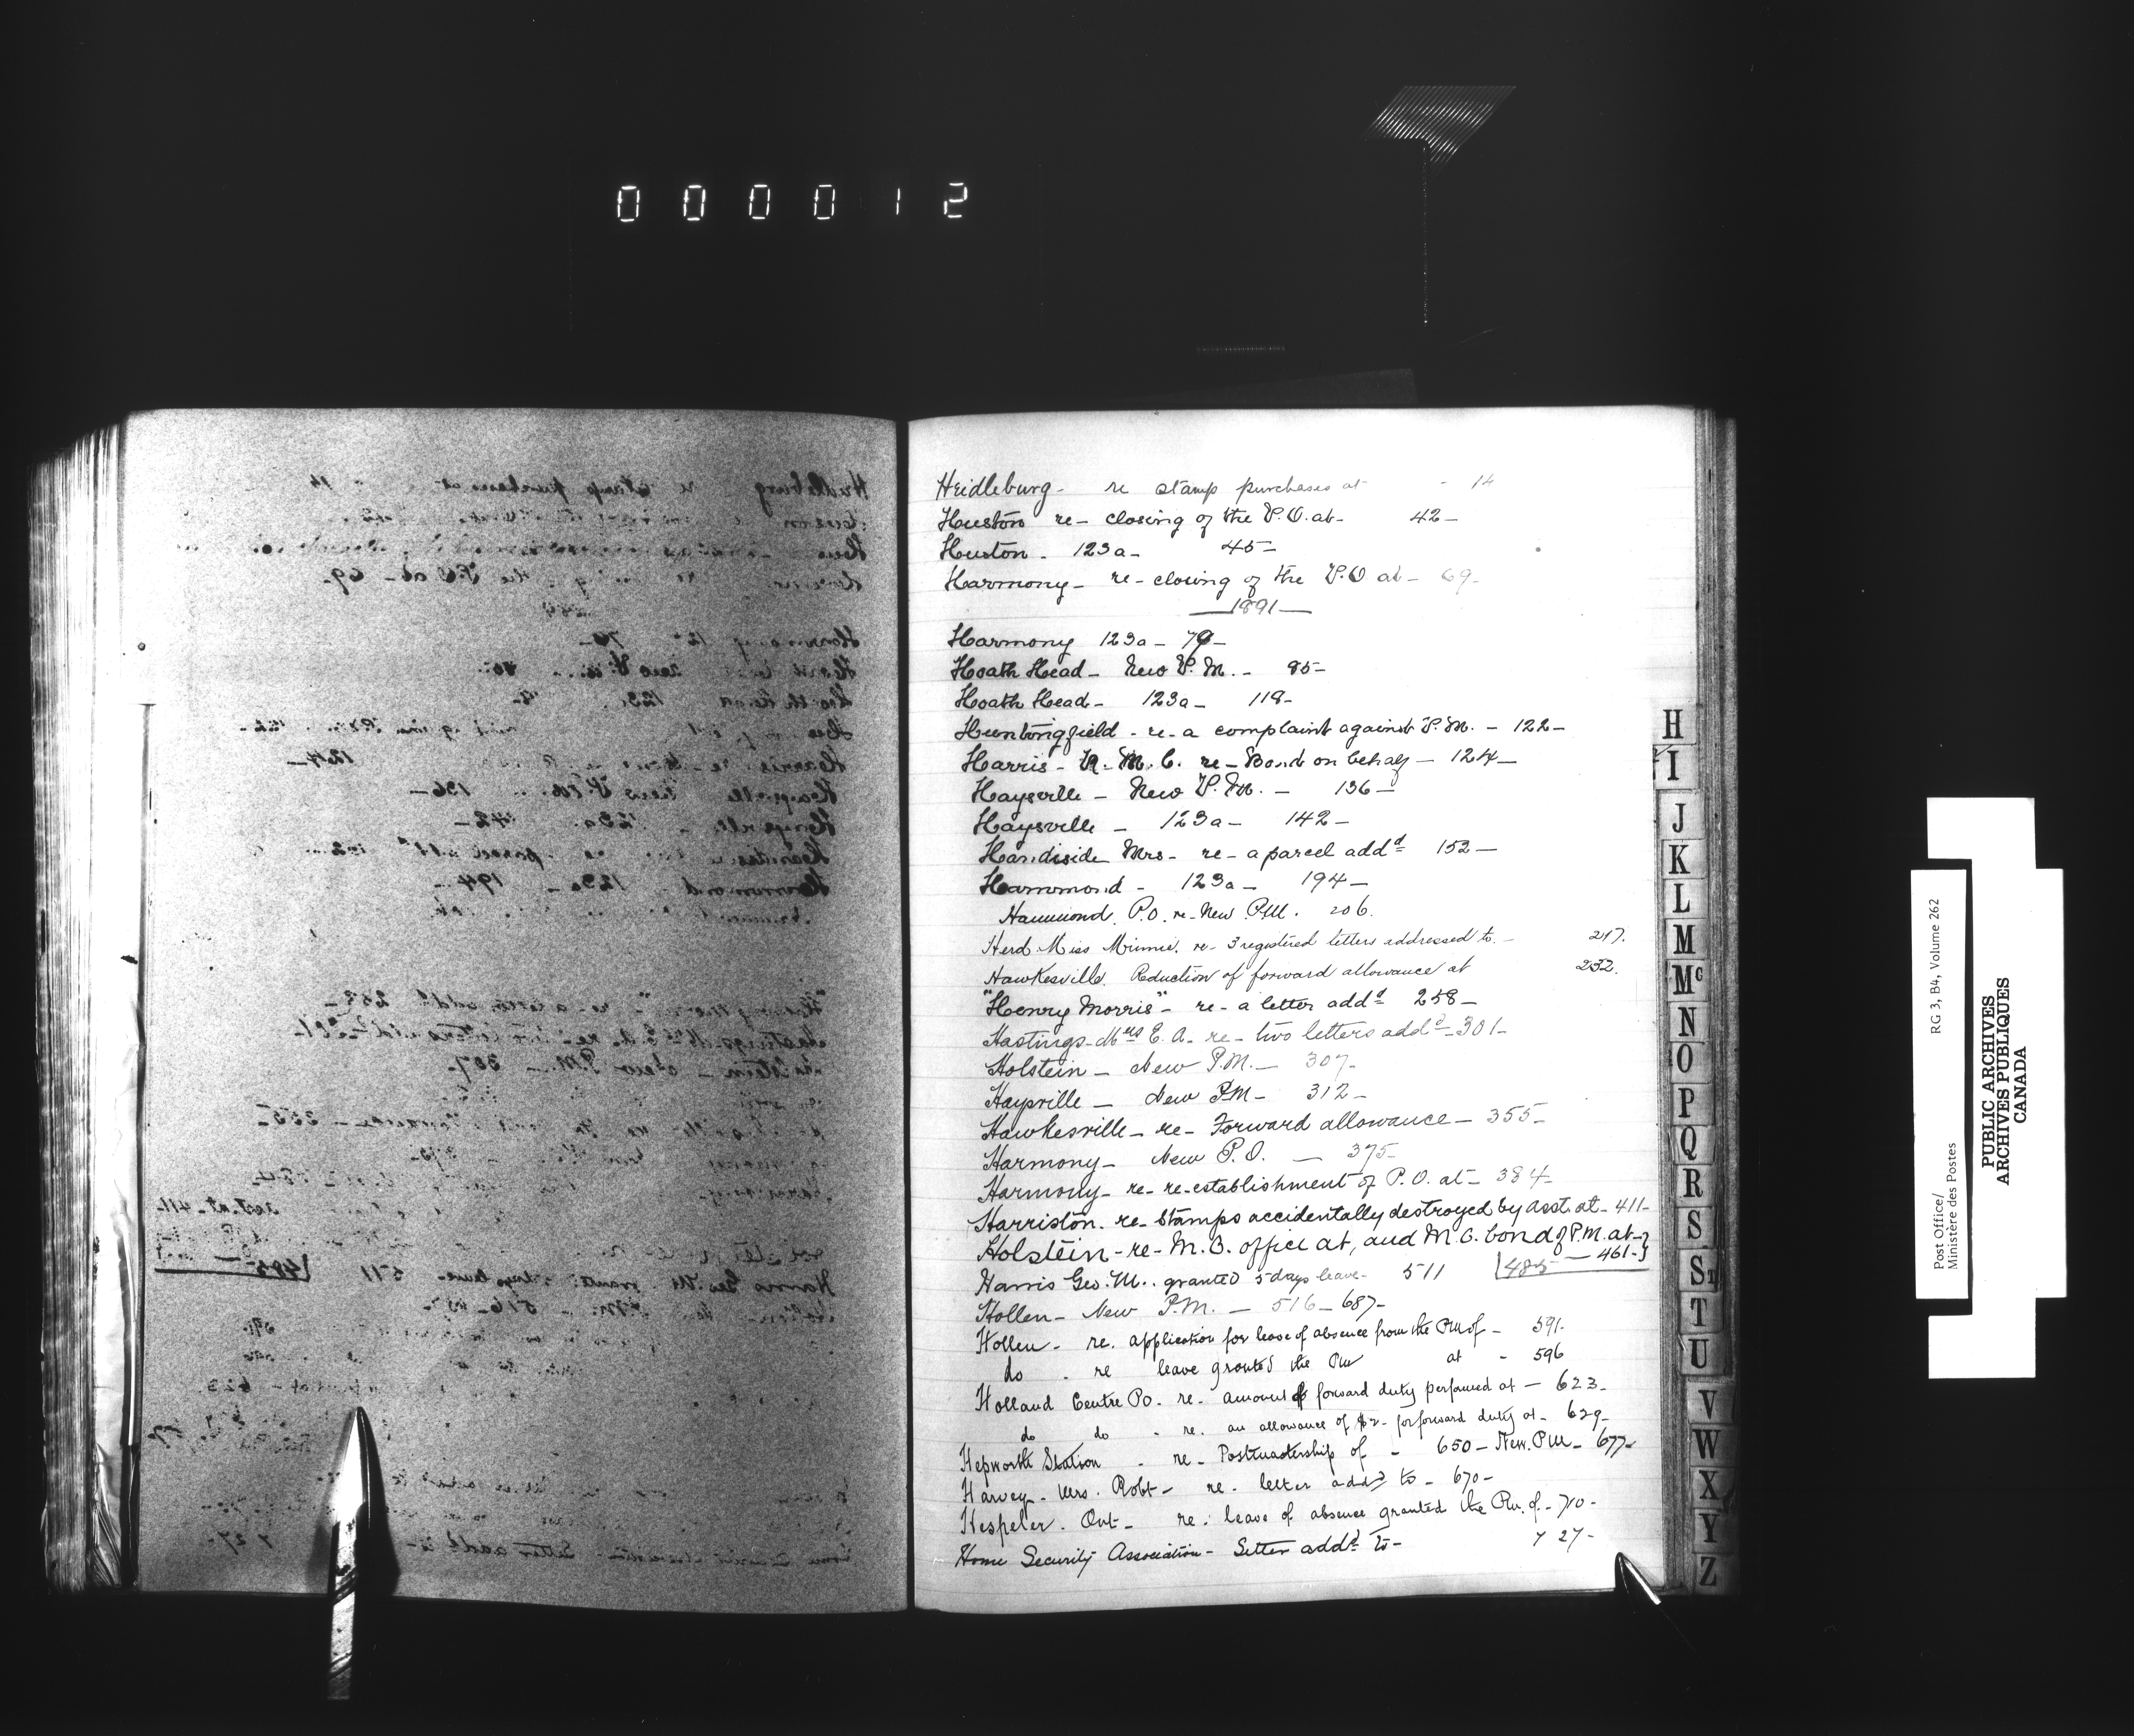 000012
Heidleburg - re stamp purchases at - 14
Huston re - closing of the P.O. at - 42 -
Huston - 123a - 45 -
Harmony - re - closing of the P.O at - 69 -
1891
Harmony 123a - 79 -
Hoath Head - New P.M. - 85 -
Hoath Head - 123a - 118 -
Huntingfield - re - a complaint against P.M. - 122 -
Harris - R. M. C. re - Bond on behalf - 124 -
Haysville - New P.M. - 136 -
Haysville - 123a - 142 -
Handiside Mrs - re - a parcel addd 152 -
Hammond - 123a - 194 -
Hammond. P.O. re - New P.M. 206.
Herd Miss Minnie. re - 3 registered letters addressed to. - 217.
Hawkesville. Reduction of forward allowance at 232.
"Henry Morris" - re - a letter addd 258 -
Hastings - Mrs E. A. re - two letters addd - 301 -
Holstein - New P.M. - 307 -
Haysville - New P.M - 312 -
Hawkesville - re - Forward allowance - 355 -
Harmony - New P.O. - 375 -
Harmony - re - re-establishment of P.O. at - 384 -
Harriston. re - Stamps accidentally destroyed by Asst. at - 411 -
Holstein - re - M.O. office at, and M.O. bond of P.M. at -
485 - 461 -
Harris Geo. M.. granted 5 days leave - 511
Hollen - New P.M. - 516 - 687 -
Hollen - re. application for leave of absence from the PM of - 591.
do - re leave granted the PM at - 596
Holland Centre P.o. re - amount of forward duty performed at - 623 -
do do - re. an allowance of $2 - for forward duty at - 629 -
Hepworth Station - re - Postmastership of - 650 - New. PM - 677 -
Harvey - Mrs. Robt - re - letter addd to - 670 -
Hespeler. Ont - re: leave of absence granted the PM. of. - 710 -
Home Security Association - Letter addd to - 727 -
H
I
J
K
L
M
Mc
N
O
P
Q
R
S
St
T
U
V
W
X
Y
Z
Post Office/
Ministère des Postes
RG 3, B4, Volume 262
PUBLIC ARCHIVES
ARCHIVES PUBLIQUES
CANADA